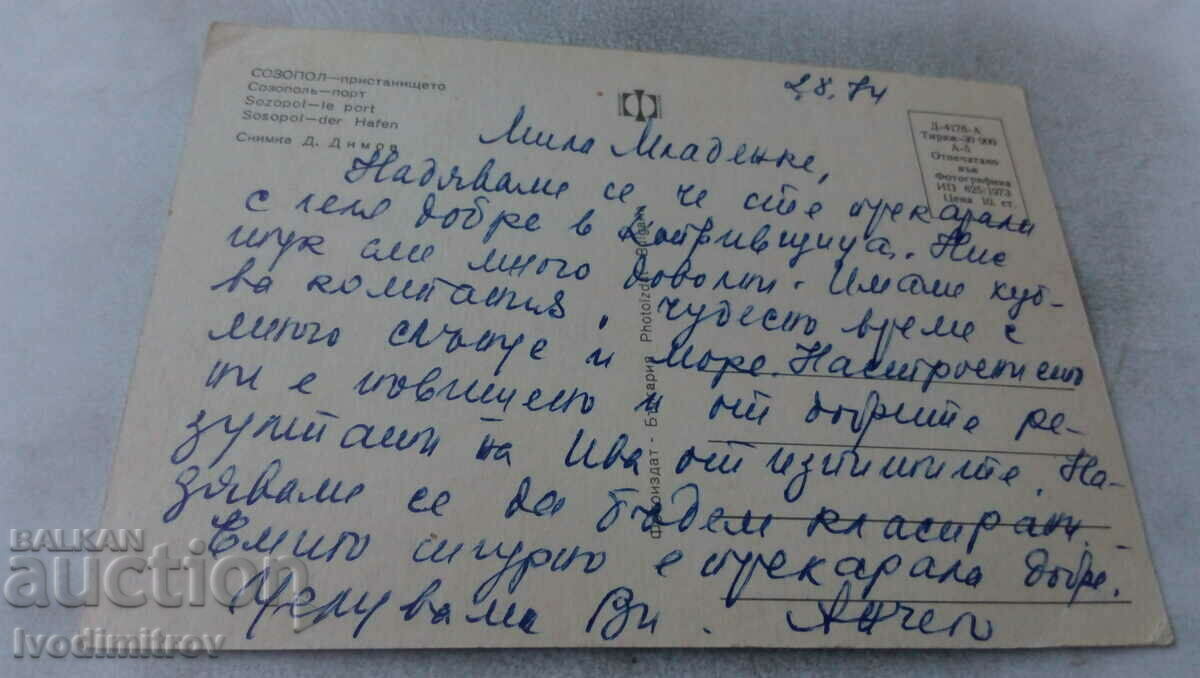 СОЗОПОЛ—пристанището
Созополь—порт
Sozopol—le port
Sosopol—der Hafen
Снимка Д. Димов
2.8.74
Д-4176-А
Тираж-30 000
А-5
Отпечатано
във
Фотографика
ИП 625/1973
Цена 10. ст.
Мила Младенке,
Надяваме се че сте прекарали
с леля добре в Копривщица. Ние
тук сме много доволни. Имаме хуб-
ва компания, чудесно време с
много слънце и море. Настроението
ни е повишено и от добрите ре-
зултати на Ива от изпитите. На-
дяваме се да бъдем класирани.
Емито сигурно е прекарала добре.
Целуваме Ви.
Фотоиздат - България Photoizdat - Bulgaria
BALKAN
auction
Ivodimitrov